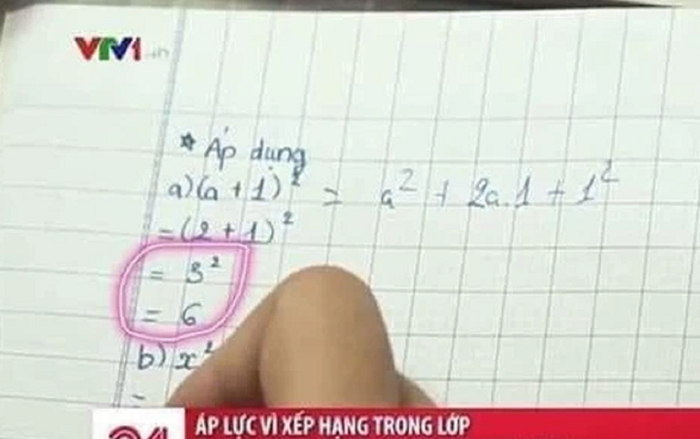 VTV1
* Áp dụng
a) (a + 1)² = a² + 2a.1 + 1²
= (2 + 1)²
= 3²
= 6
b) x²
=
24
ÁP LỰC VÌ XẾP HẠNG TRONG LỚP